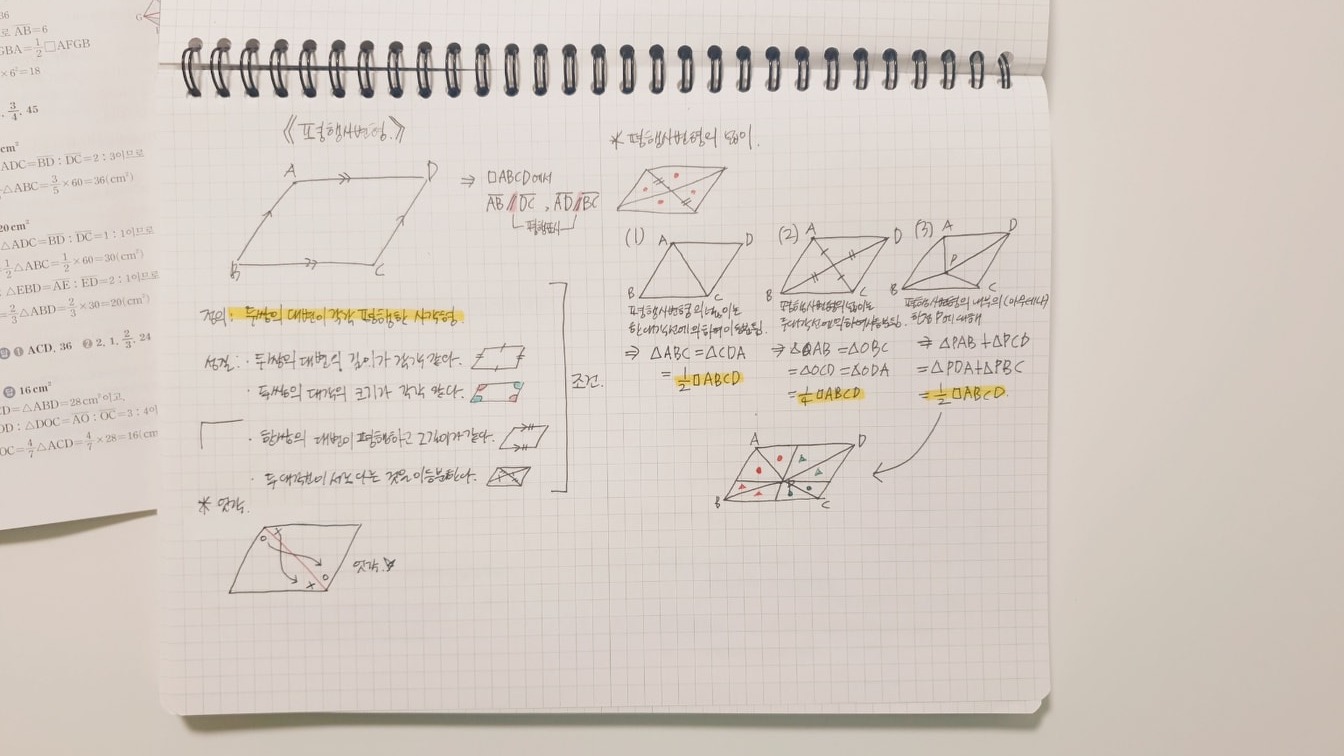 36
로 AB=6
GBA=1/2□AFGB
×6²=18
, 3/4, 45
cm²
ADC=BD : DC=2 : 3이므로
△ABC=3/5×60=36(cm²)
20cm²
△ADC=BD : DC=1 : 1이므로
1/2△ABC=1/2×60=30(cm²)
△EBD=AE : ED=2 : 1이므로
2/3△ABD=2/3×30=20(cm²)
답 ❶ ACD, 36 ❷ 2, 1, 2/3, 24
답 16cm²
CD=△ABD=28cm²이고,
OD : △DOC=AO : OC=3 : 4이
OC=4/7△ACD=4/7×28=16(cm
G
《평행사변형》
A D
B C
⇒ □ABCD에서
AB // DC , AD // BC
평행표시
정의: 두쌍의 대변이 각각 평행한 사각형
성질: · 두쌍의 대변의 길이가 각각 같다.
· 두쌍의 대각의 크기가 각각 같다.
· 한쌍의 대변이 평행하고 그 길이가 같다.
· 두 대각선이 서로 다른 것을 이등분한다.
조건.
* 엇각.
엇각.
* 평행사변형의 넓이.
(1) A D
B C
평행사변형의 넓이는
한 대각선에 의하여 이등분됨.
⇒ △ABC = △CDA
= 1/2□ABCD
(2) A D
B C
평행사변형의 넓이는
두 대각선에 의하여 사등분됨.
⇒ △OAB = △OBC
= △OCD = △ODA
= 1/4□ABCD
(3) A D
P
B C
평행사변형의 내부의 (아무데나)
한 점 P에 대해
⇒ △PAB + △PCD
= △PDA + △PBC
= 1/2□ABCD.
A D
P
B C